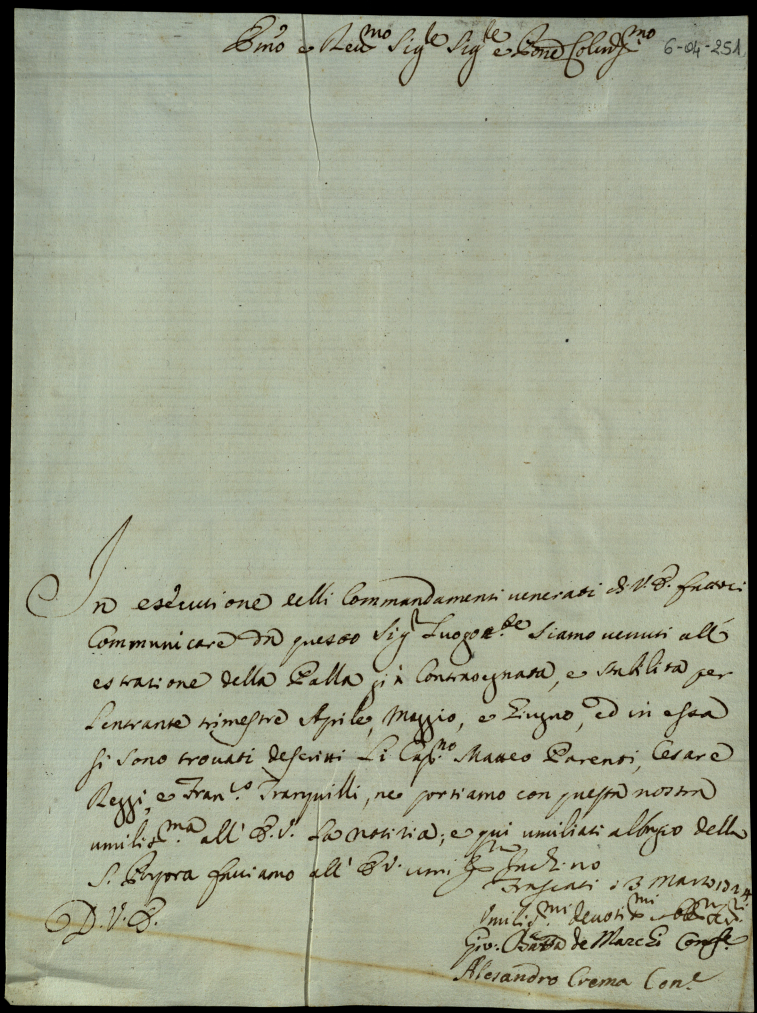 Emo e Reumo Sigle Sigle e Pone Colendmo 6-04-251
In esecutione delli Commandamenti venerati di V.E. fattoci
Communicare da questo Sigr Luogote siamo venuti all'
estratione della Palla già Contrasegnata, e stabilita per
L'entrante trimestre Aprile, Maggio, e Giugno, ed in essa
si sono trovati descritti Li Capno Matteo Parenti, Cesare
Reggi, e Franco Tranquilli, ne portiamo con questa nostra
umilisma all' E.V. la notitia; e qui umiliati al bagio della
S. Porpora facciamo all' E.V. Inchino
D.V.E.
Frascati 3 Marzo
Umilismi devotimi
Gio: Batta de Marchi Conse
Alesandro Crema Cone